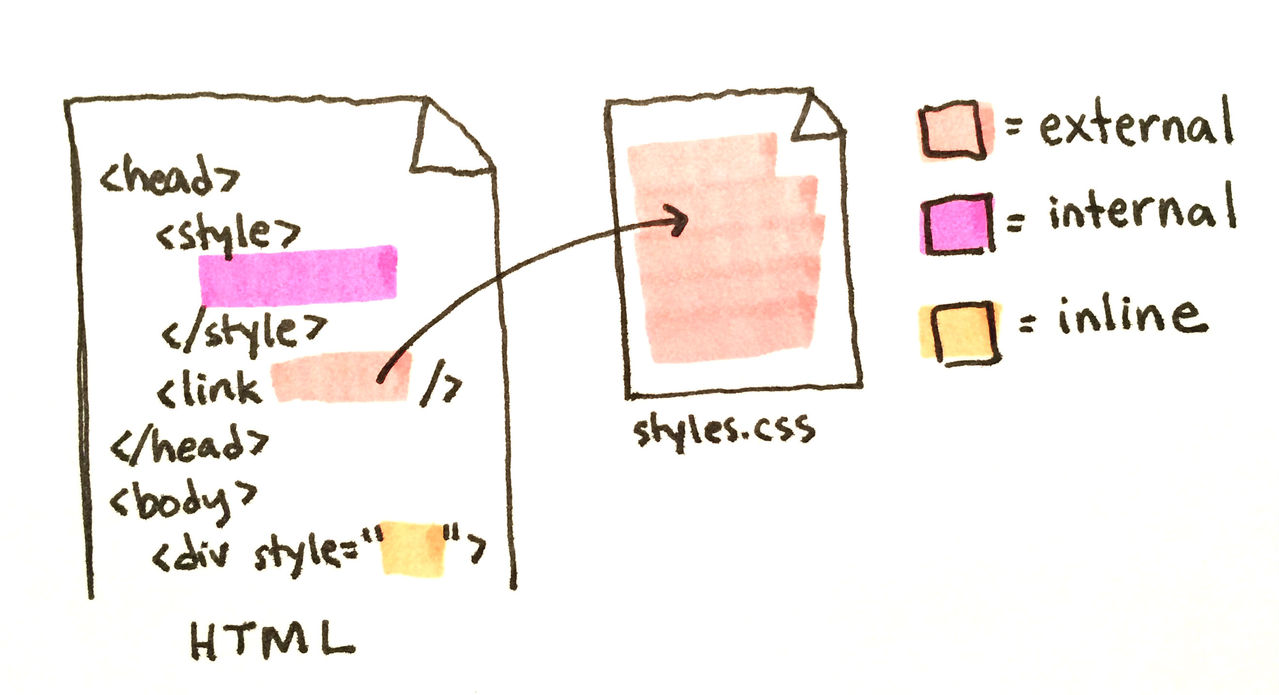 <head>
<style>
</style>
<link />
</head>
<body>
<div style="">
HTML
styles.css
= external
= internal
= inline